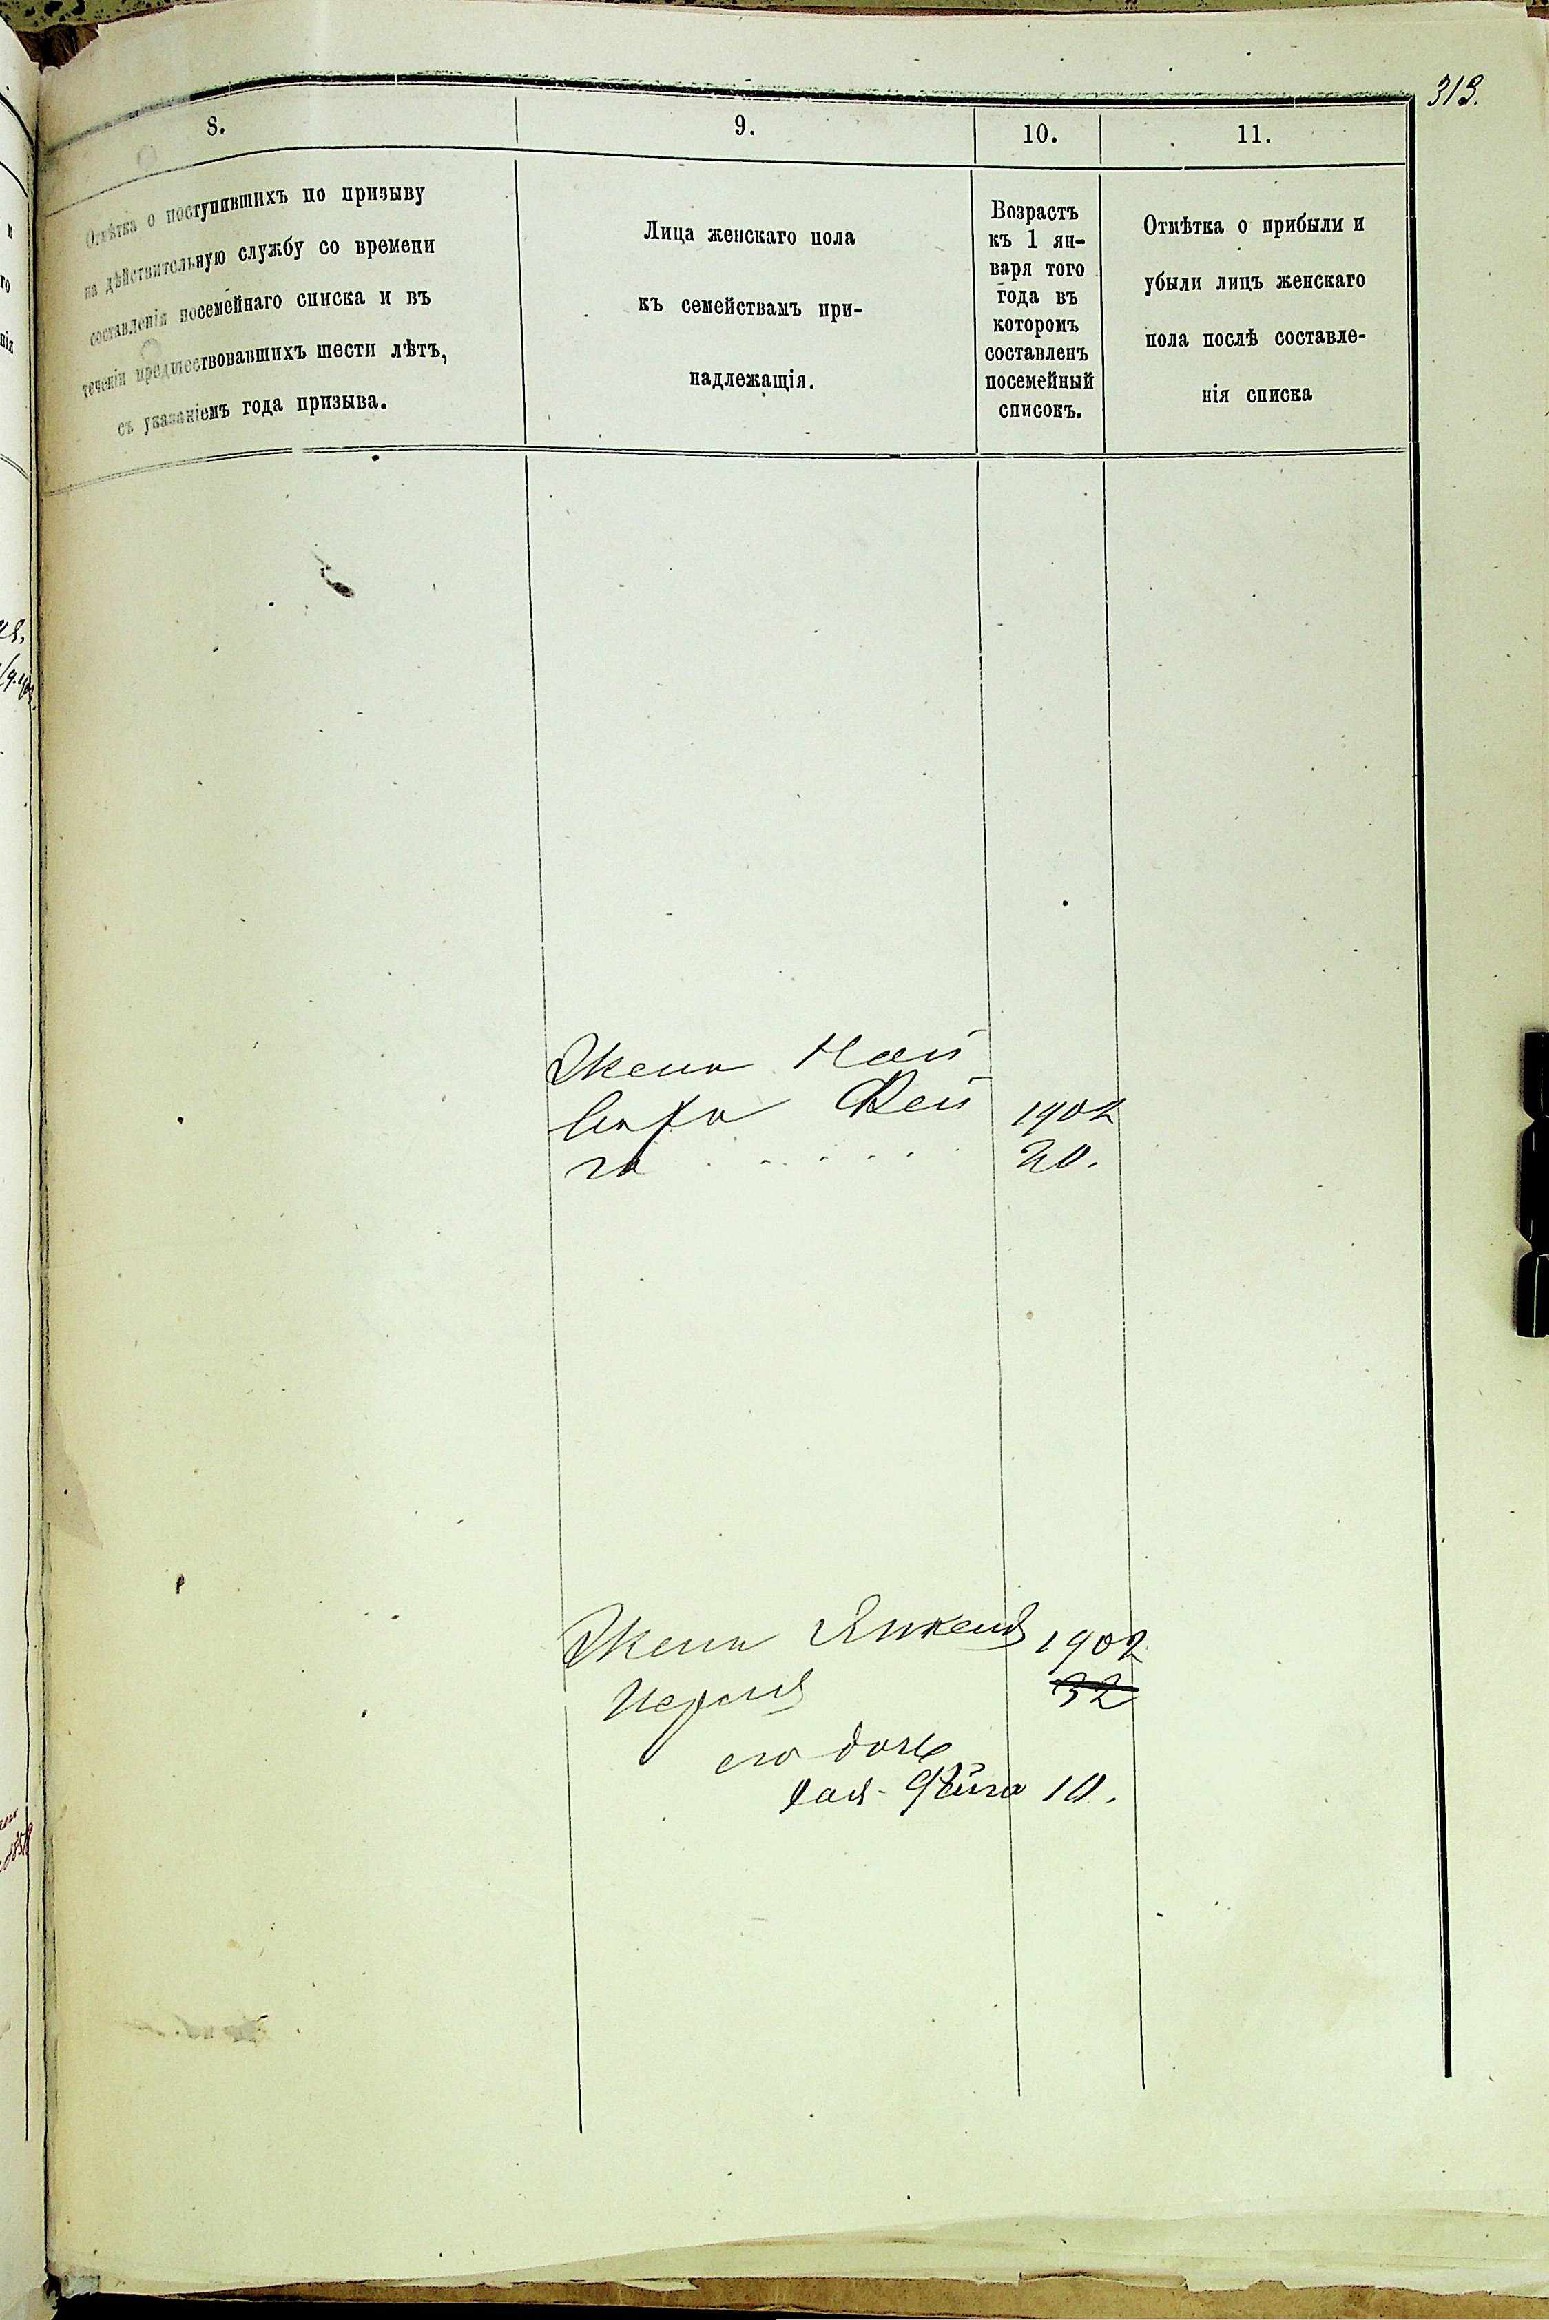 313.
8.
9.
10.
11.
Отмѣтка о поступившихъ по призыву
на дѣйствительную службу со времени
составленія посемейнаго списка и въ
теченіи предшествовавшихъ шести лѣтъ,
съ указаніемъ года призыва.
Лица женскаго пола
къ семействамъ при-
надлежащія.
Возрастъ
къ 1 ян-
варя того
года въ
которомъ
составленъ
посемейный
списокъ.
Отмѣтка о прибыли и
убыли лицъ женскаго
пола послѣ составле-
нія списка
Жена
Фей 1902
га 20.
Жена Янкеля 1902
32
его дочь
Фейга 10.